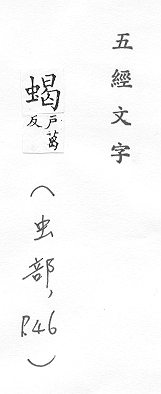 五經文字
蝎戶葛反
（虫部，P.46）